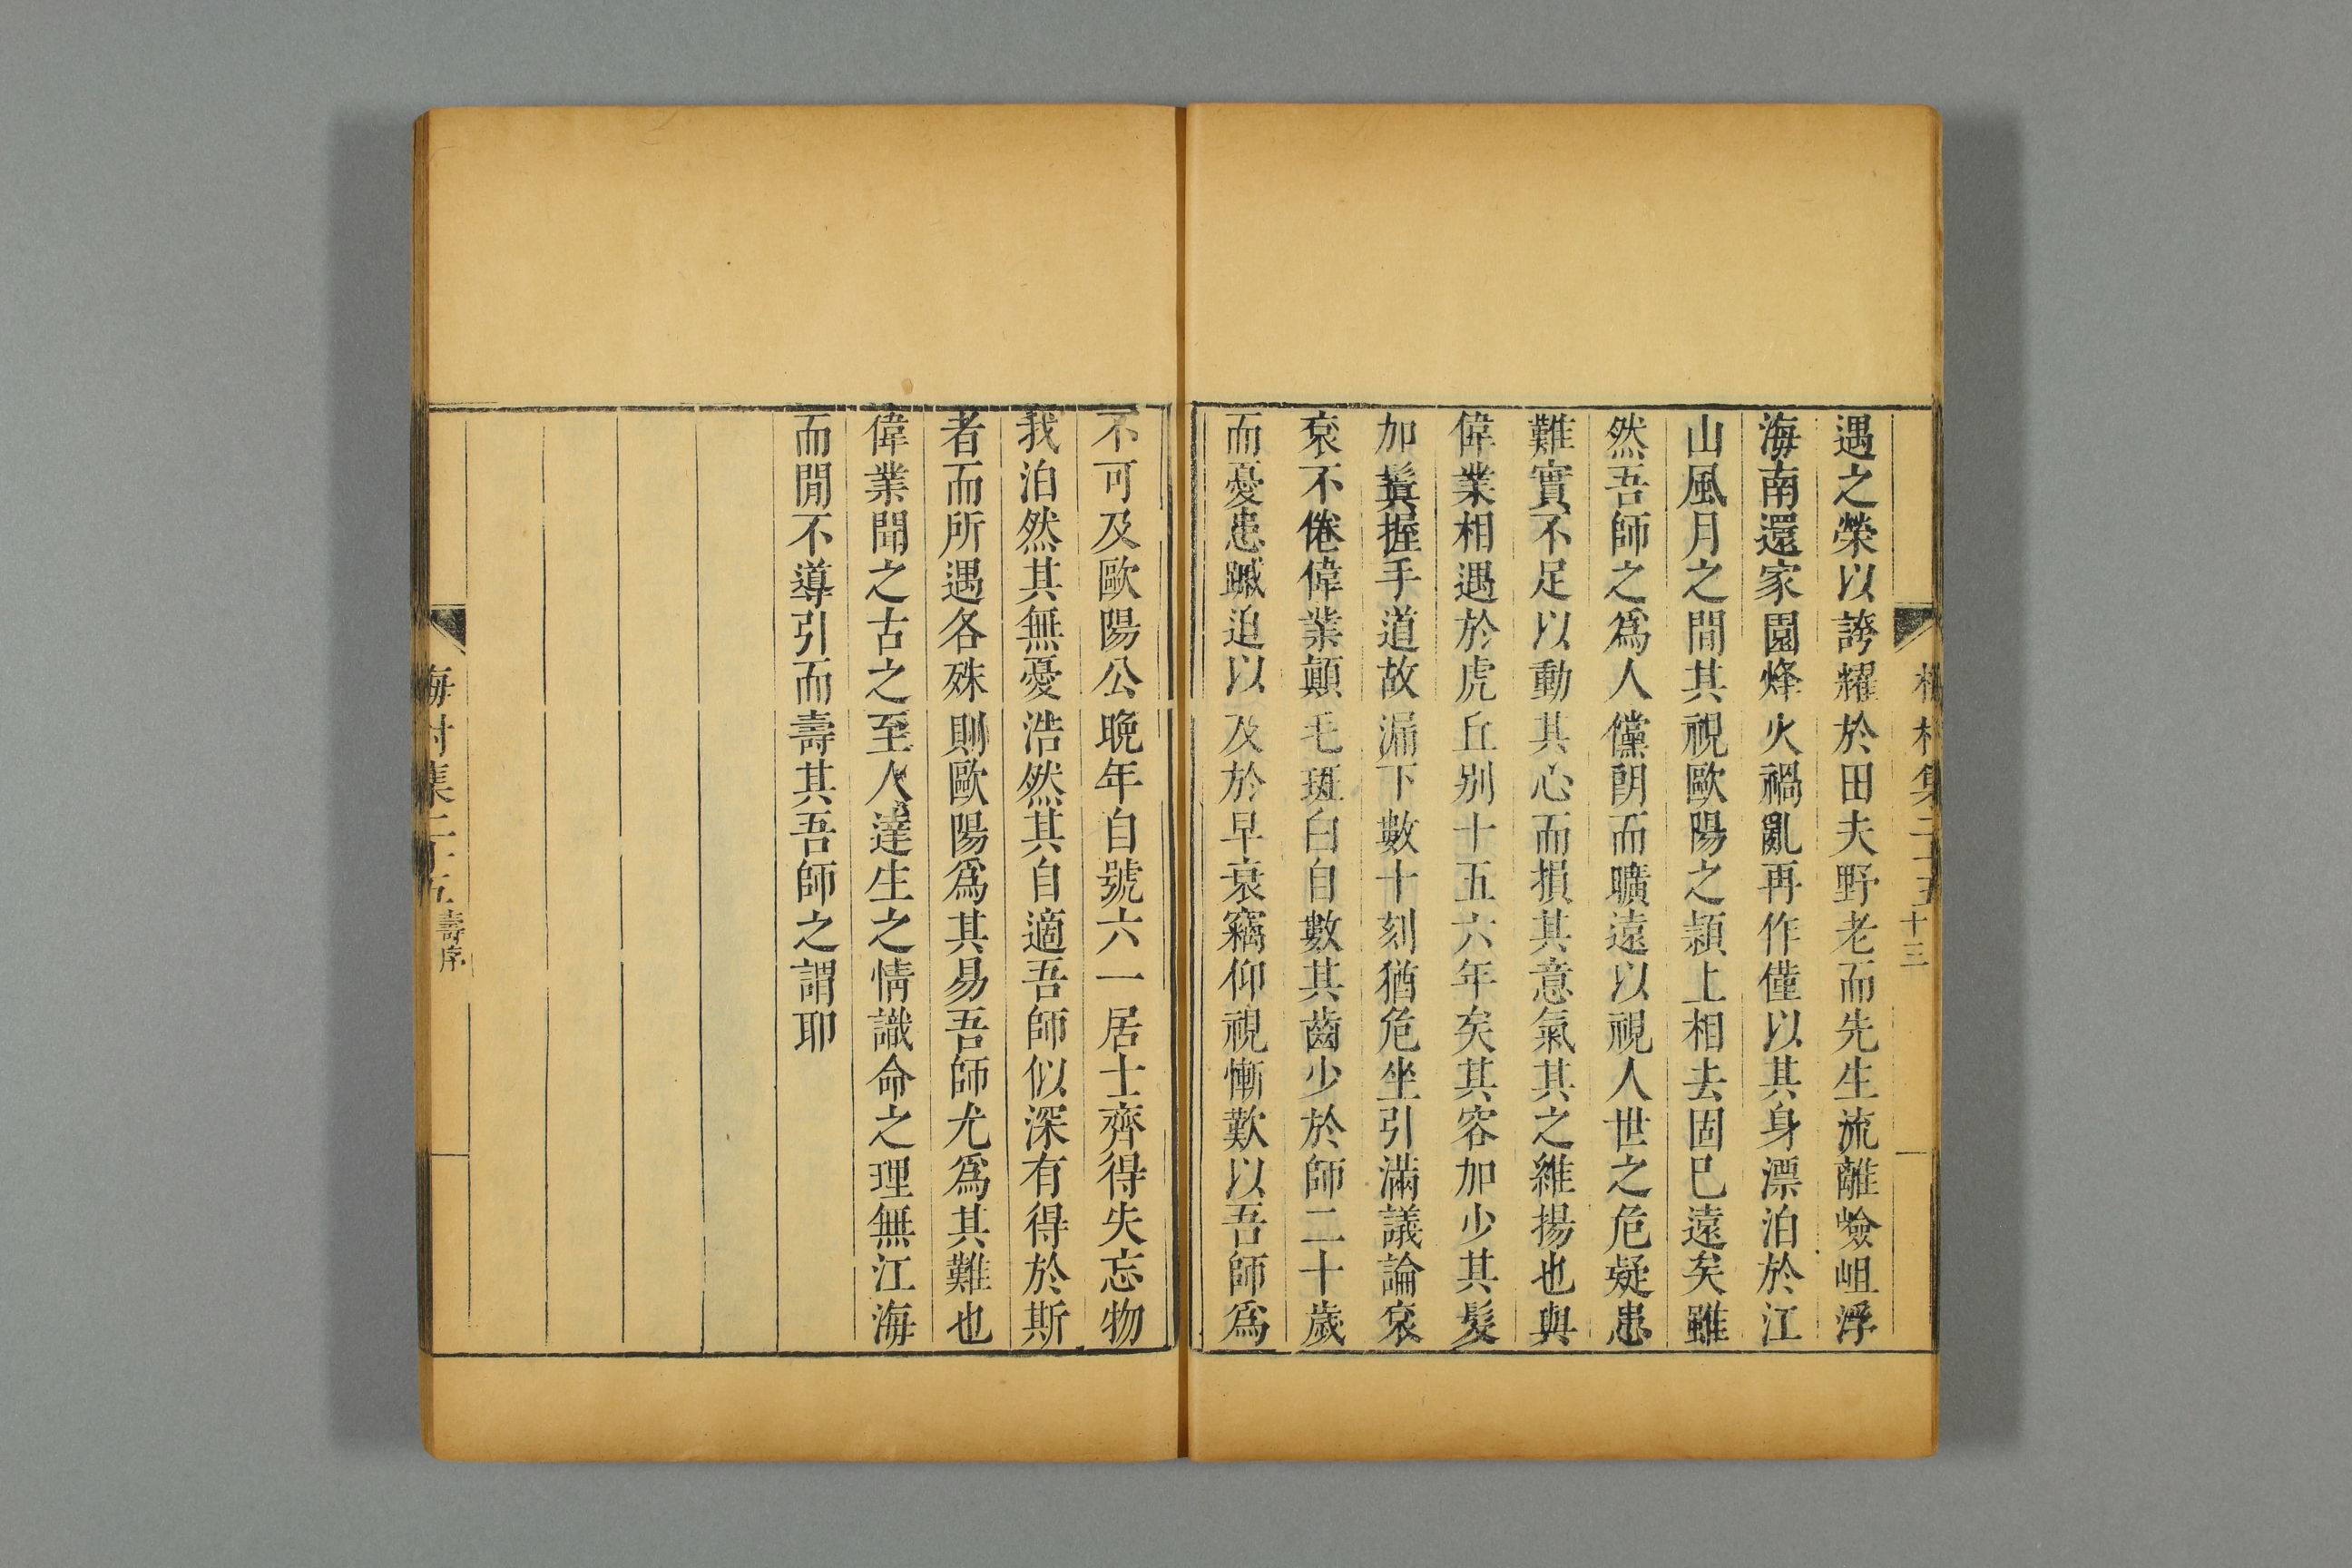 遇之榮以誇耀於田夫野老而先生流離嶮岨浮
海南還家園烽火禍亂再作僅以其身漂泊於江
山風月之間其視歐陽之潁上相去固已遠矣雖
然吾師之爲人儻朗而曠遠以視人世之危疑患
難實不足以動其心而損其意氣其之維揚也與
偉業相遇於虎丘别十五六年矣其容加少其髮
加鬒握手道故漏下數十刻猶危坐引滿議論衮
衮不倦偉業顛毛斑白自數其齒少於師二十歲
而憂患蹙迫以及於早衰竊仰視慚歎以吾師爲
不可及歐陽公晚年自號六一居士齊得失忘物
我泊然其無憂浩然其自適吾師似深有得於斯
者而所遇各殊則歐陽爲其易吾師尤爲其難也
偉業聞之古之至人達生之情識命之理無江海
而閒不導引而壽其吾師之謂耶
梅村集二十五
十三
梅村集二十五
壽序